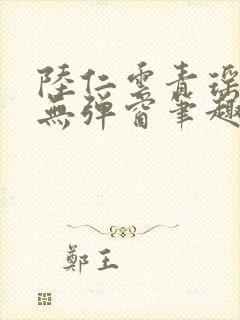 陸仁雲青瑤
無彈窗筆趣
鄭王